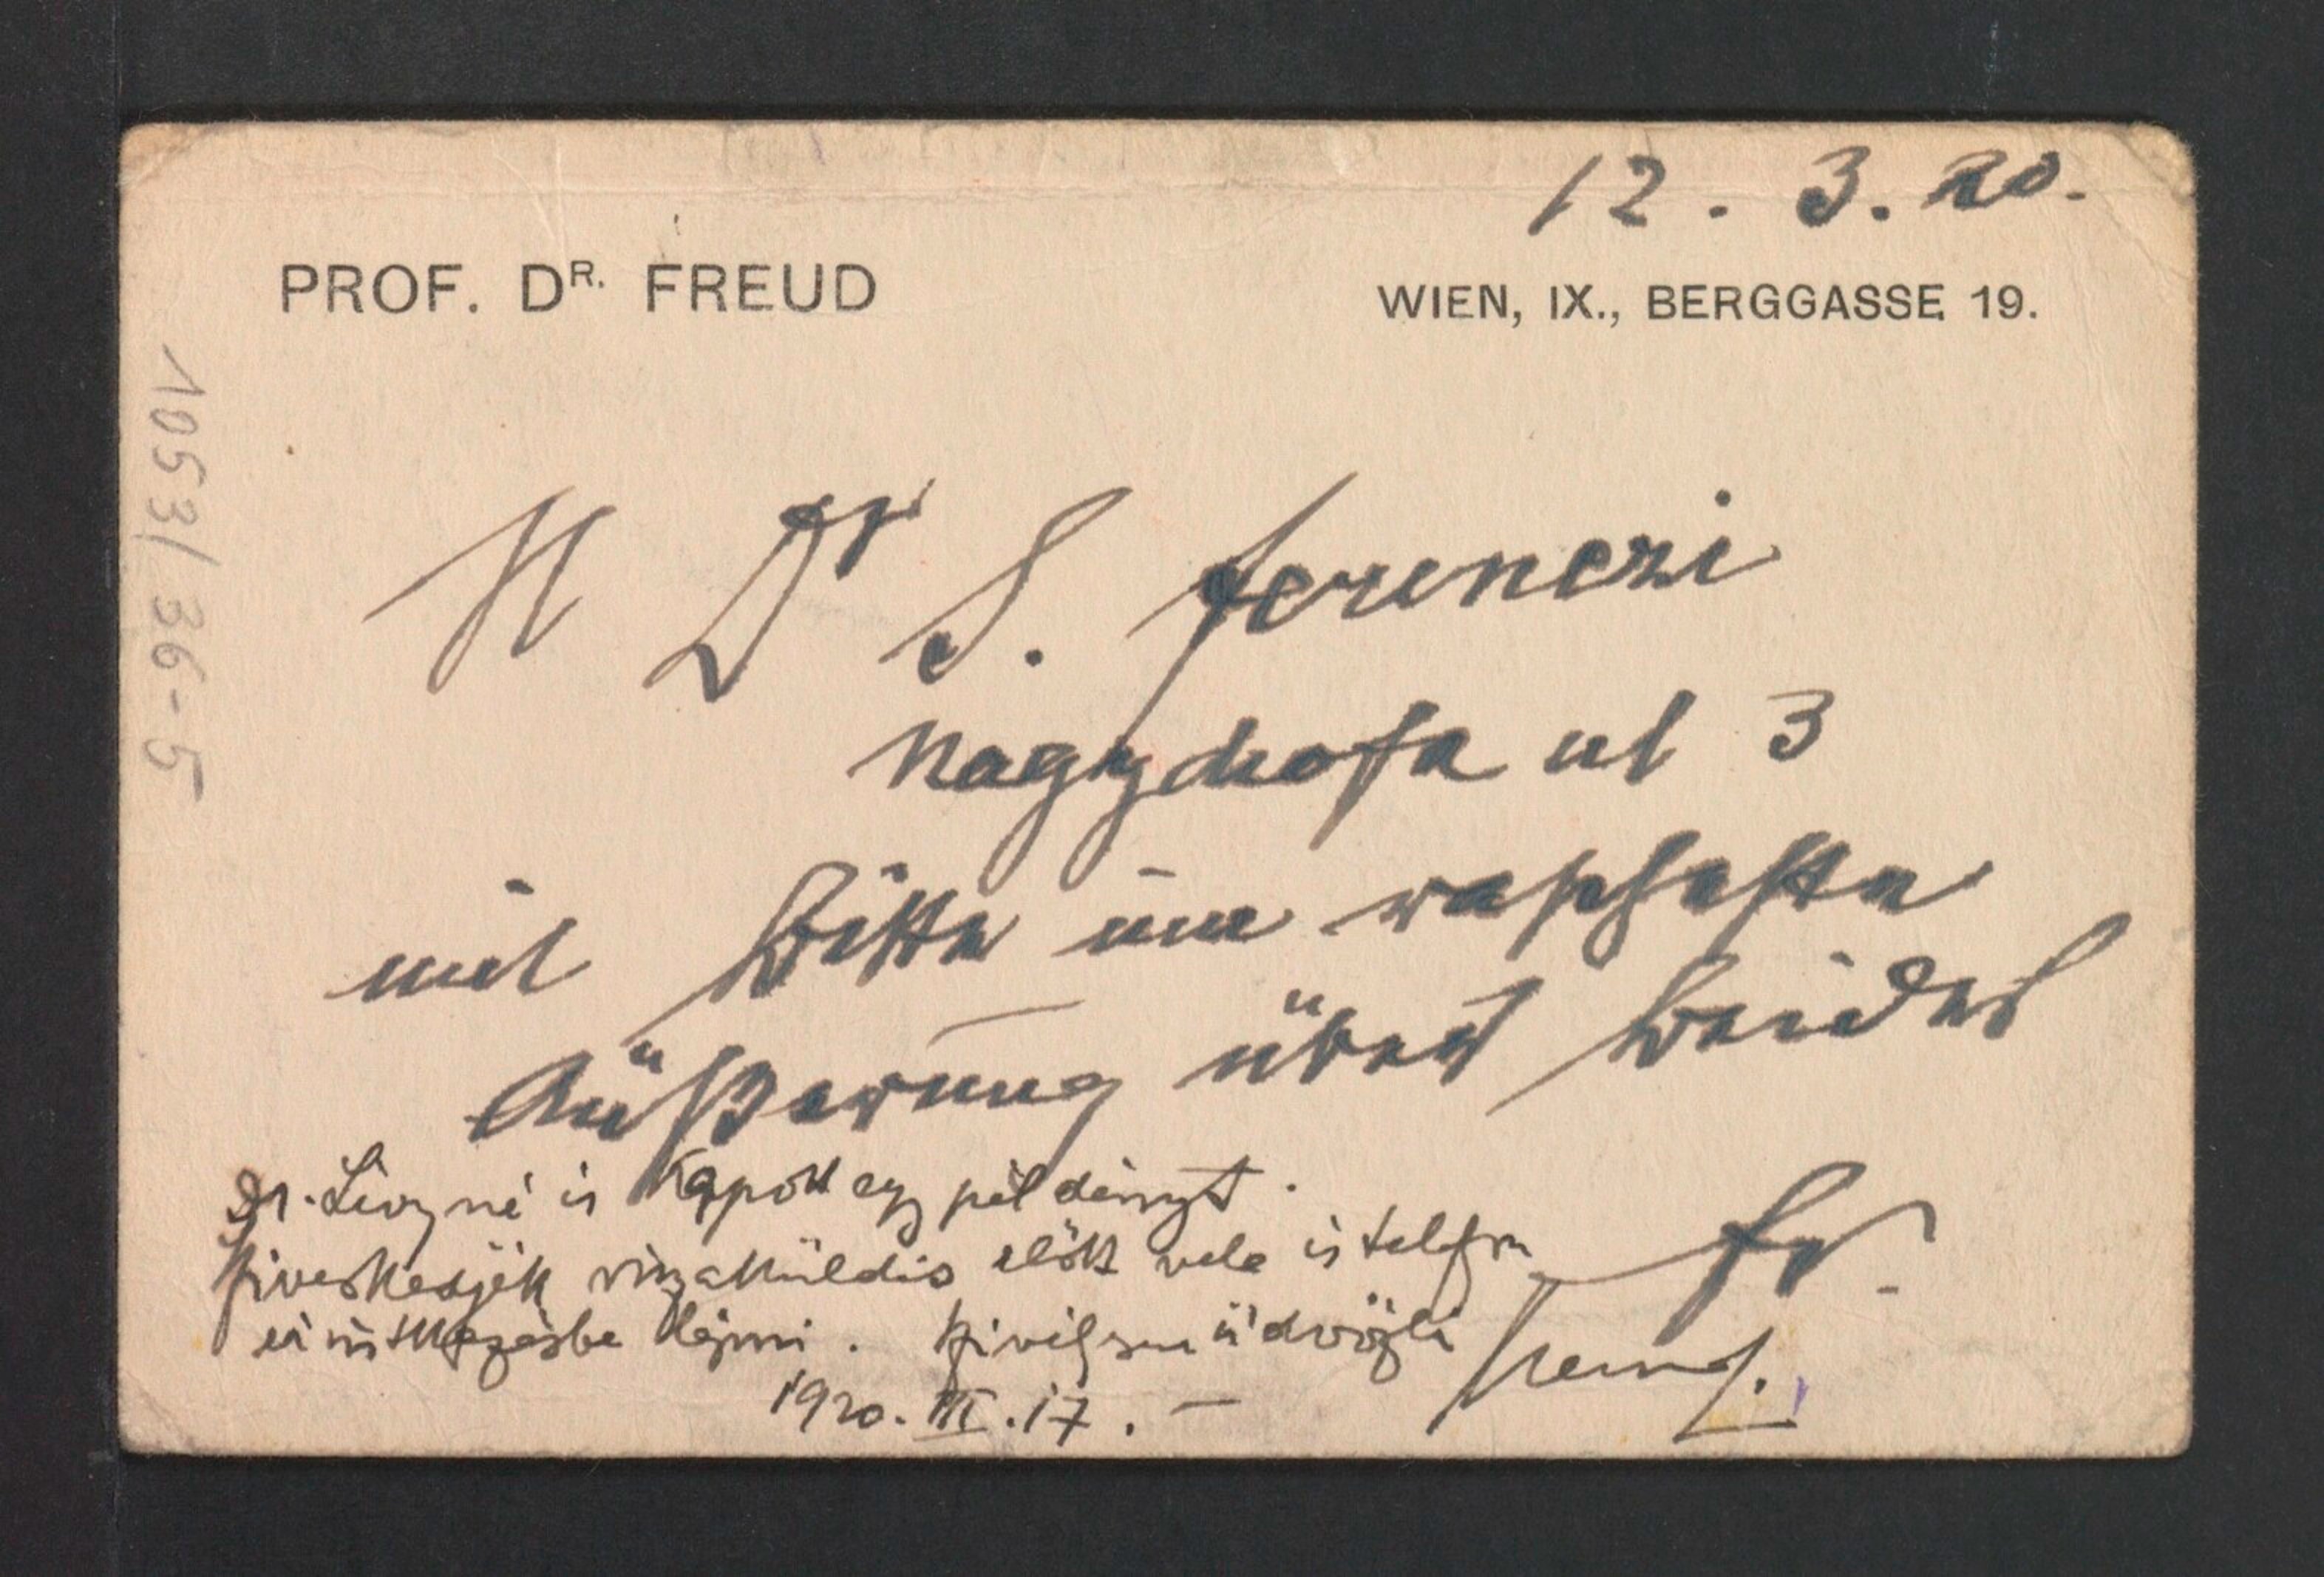 12. 3. 20.
PROF. DR. FREUD
WIEN, IX., BERGGASSE 19.
H Dr S. Ferenczi
Nagydiofa ut 3
mit Bitte um rascheste
Äußerung über beides
Fr.
Dr. Lévyné is kapott egy példányt.
Sziveskedjék visszaküldés előtt vele is telefon
érintkezésbe lépni. Szivélyesen üdvözli
1920. III. 17. —
1053/36-5